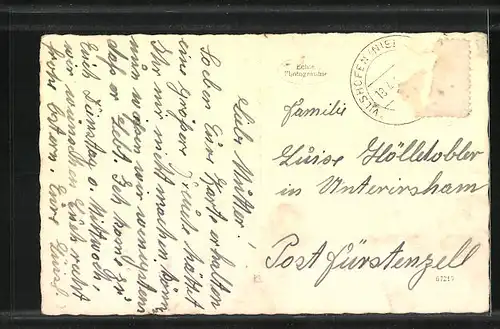 Liebe Mutter!
Soeben Eure Karte erhalten
eine größere Freude hättet
Ihr mir nicht machen können
nun wissen wir wenigstens
daß er lebt. Ich komme zu
Euch Dienstag o. Mittwoch
wir wünschen Euch recht
frohe Ostern. Eure Luise
Echte
Photographie
VILSHOFEN (NIE
18.4
Familie
Luise Hölltobler
in Unterirsham
Post Fürstenzell
67215